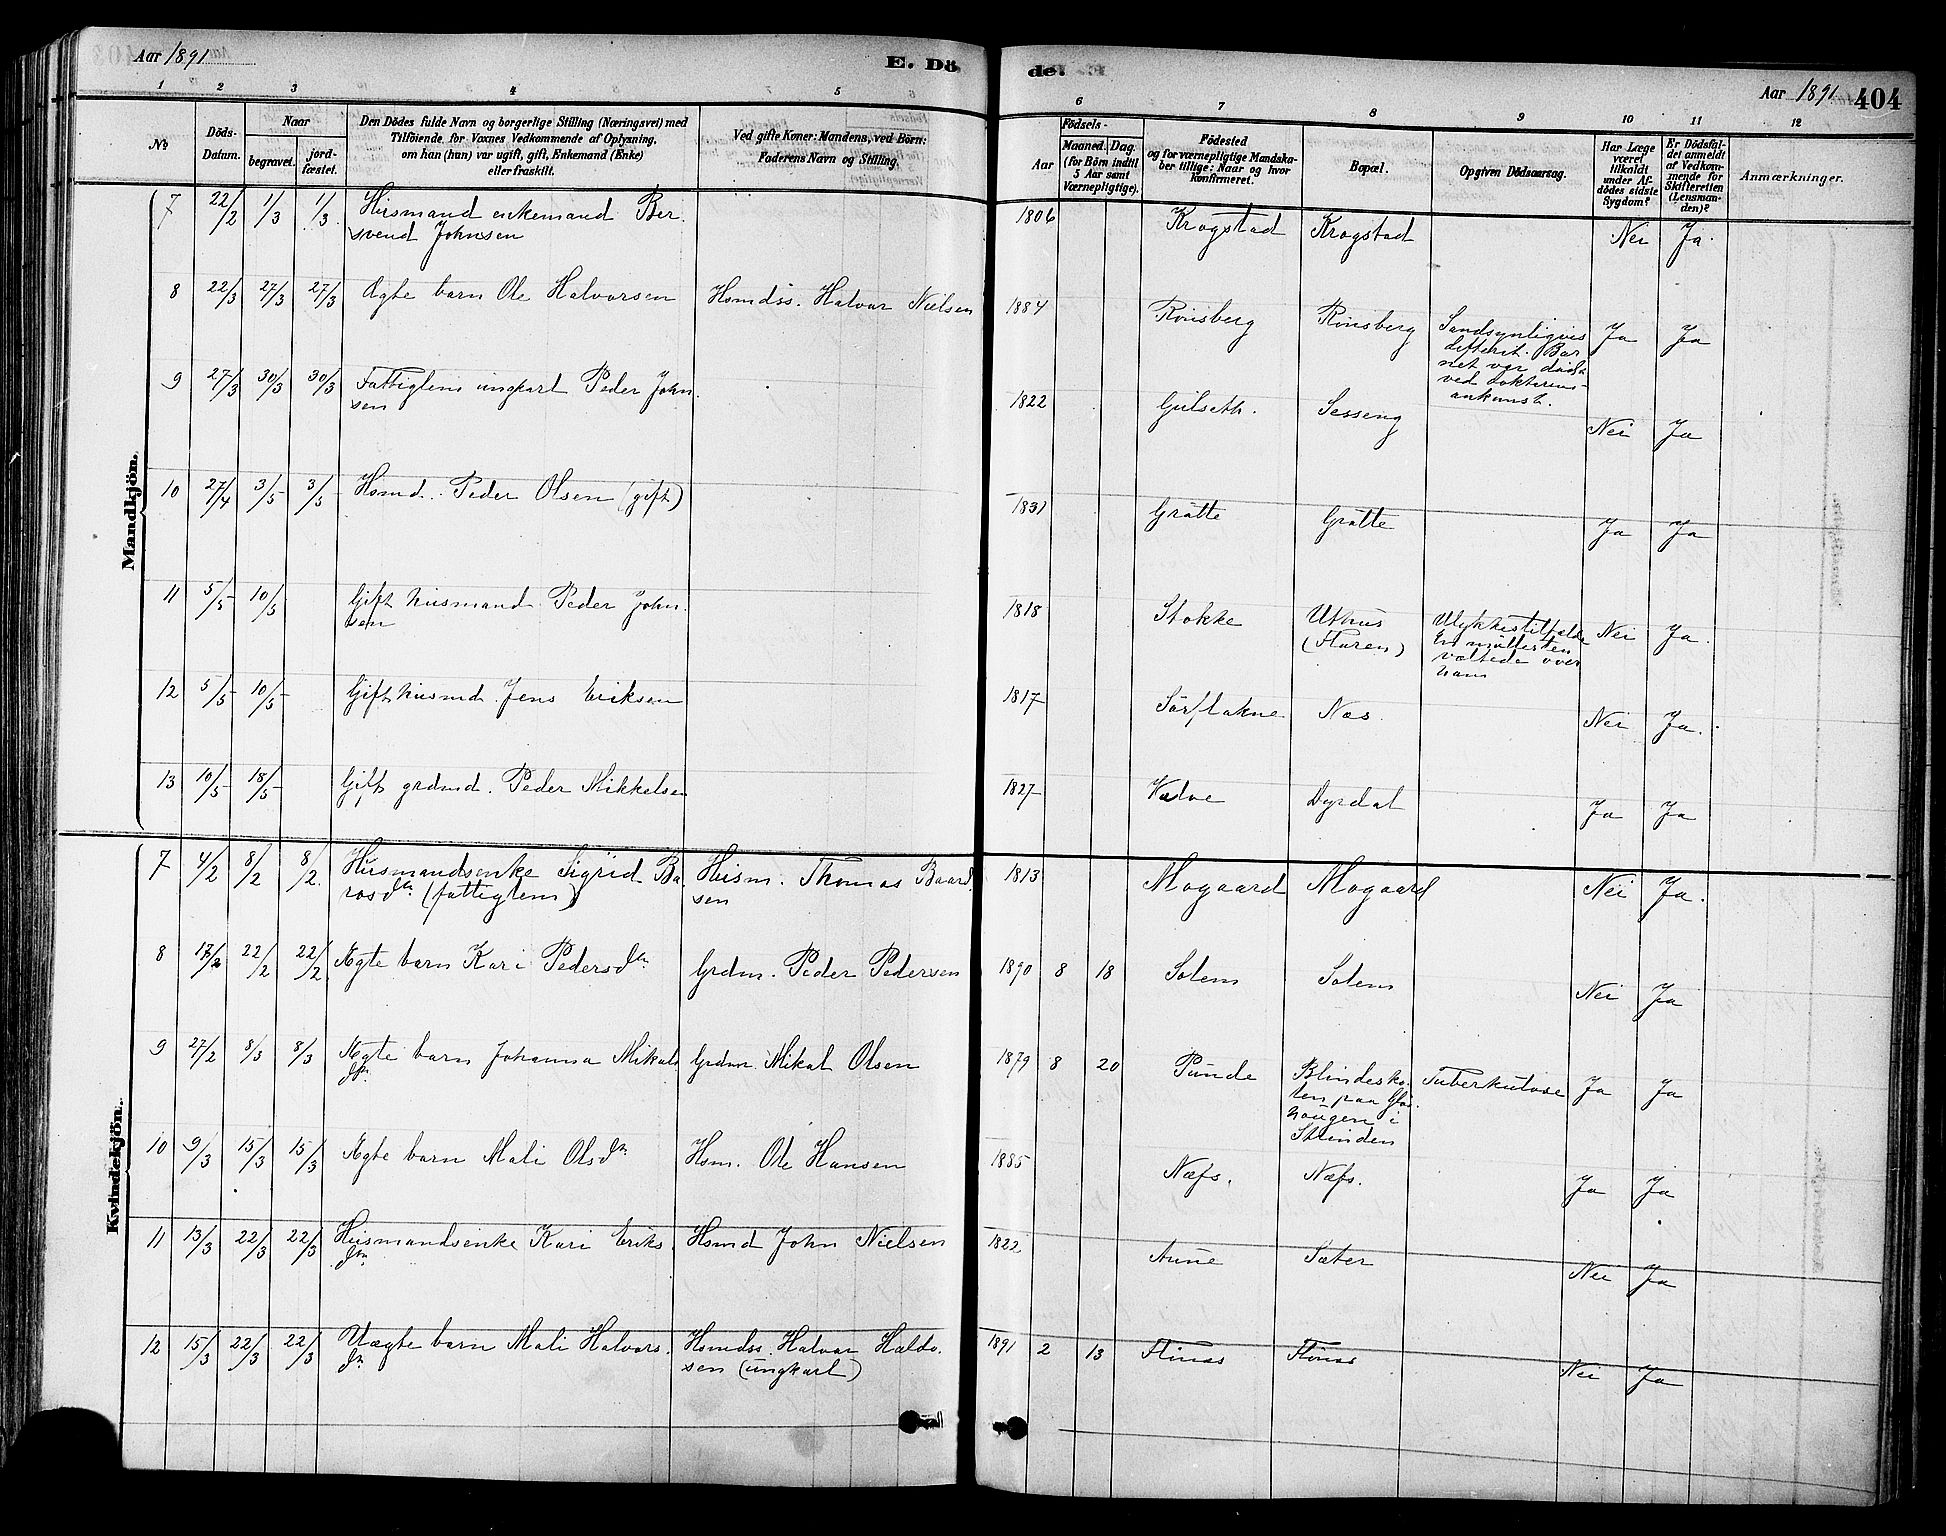 Aar 1891
E. Dö
de.
Aar 1891
404
1 2 3 4 5 6 7 8 9 10 11 12
No
Döds-Datum.
Naar
begravet.
jord-fæstet.
Den Dödes fulde Navn og borgerlige Stilling (Næringsvei) med
Tilföiende for Voxnes Vedkommende af Oplysning,
om han (hun) var ugift, gift, Enkemand (Enke)
eller fraskilt.
Ved gifte Koner: Mandens, ved Börn:
Faderens Navn og Stilling.
Födsels-
Aar
Maaned. Dag.
(for Börn indtil
5 Aar samt
Værnepligtige).
Födested
og for værnepligtige Mandska-
ber tillige: Naar og hvor
konfirmeret.
Bopæl.
Opgiven Dödsaarsag.
Har Læge
været
tilkaldt
under Af-
dödes sidste
Sygdom?
Er Dödsfal-
det anmeldt
af Vedkom-
mende for
Skifteretten
(Lensman-
den)?
Anmærkninger.
Mandkjön.
7 22/2 1/3 1/3 Husmand enkemand Ber
svend Johnsen
1806 Krogstad Krogstad Nei Ja.
8 22/3 27/3 27/3 Ægte barn Ole Halvorsen Hsmdss. Halvor Nielsen
1884 Rönsberg Rönsberg Sandsynligvis
difterit. Bar
net var dödt
ved dokterens
ankomst.
Ja Ja
9 27/3 30/3 30/3 Fattiglem ungkarl Peder John
sen
1822 Gulseth. Sesseng Nei Ja
10 27/4 3/5 3/5 Hsmd. Peder Olsen (gift)
1831 Grötte Grötte Ja Ja
11 5/5 10/5 Gift husmand Peder John
sen
1818 Stokke Uthus
(Floren)
Ulykkestilfælde
En möllesten
væltede over
ham
Nei Ja.
12 5/5 10/5 Gift husmd. Jens Eriksen
1817 Sörflakne Næs. Nei Ja.
13 10/5 18/5 Gift grdmd. Peder Mikkelsen
1827 Kalve Dyrdal Ja Ja
Kvindekjön.
7 4/2 8/2 8/2. Husmandsenke Sigrid Ba
rosdtr (fattiglem)
Husm. Thomas Baard
sen
1813 Mogaard Mogaard Nei Ja.
8 17/2 22/2 22/2 Ægte barn Kari Pedersdtr Grdm. Peder Pedersen
1890 8 18 Solem Solem Nei Ja
9 27/2 8/3 8/3 Ægte barn Johanna Mikals
dtr
Grdm. Mikal Olsen
1879 8 20 Punde Blindesko
len paa
haugen i
Strinden
Tuberkulose Ja Ja
10 9/3 15/3 15/3 Ægte barn Mali Olsdtr Hsm. Ole Hansen
1885 Næss. Næss. Ja Ja
11 13/3 22/3 22/3 Husmandsenke Kari Eriks
dtr
Hsmd John Nielsen
1822 Aune Sæter Nei Ja
12 15/3 22/3 22/3 Uægte barn Mali Halvors
dtr
Hsmdss. Halvor Haldo
sen (ungkarl)
1891 2 13 Flönæs Flönæs Nei Ja